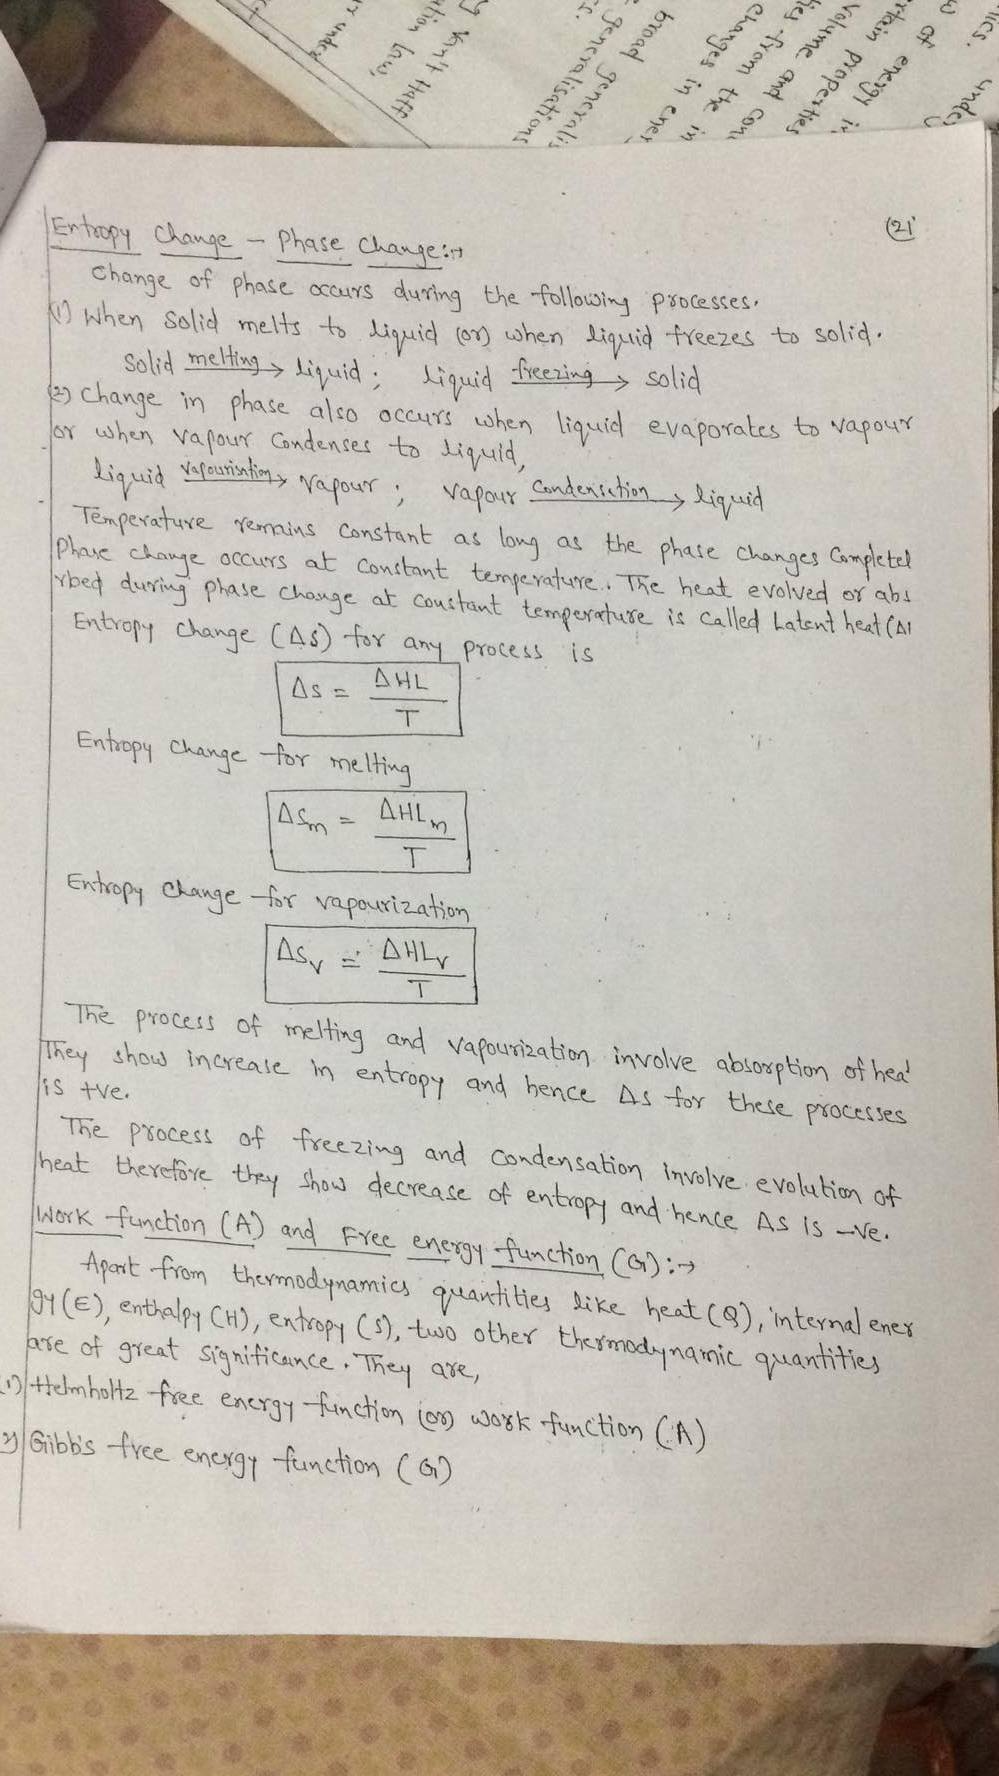 ics. under
w of energy in
rtain properties
volume and con
ties from the in
changes in ener
broad generalis
generalisations
Van't Hoff
ution law,
ur under
(21)
Entropy Change - Phase Change:→
Change of phase occurs during the following processes.
(1) When Solid melts to liquid (or) when liquid freezes to solid.
Solid melting→ liquid; liquid freezing→ solid
(2) Change in phase also occurs when liquid evaporates to vapour
or when vapour Condenses to liquid,
liquid vapourisation→ vapour; vapour Condensation→ liquid
Temperature remains Constant as long as the phase Changes Completel
Phase change occurs at constant temperature. The heat evolved or abs
rbed during phase change at constant temperature is Called Latent heat (ΔH
Entropy Change (ΔS) for any process is
ΔS = ΔHL / T
Entropy Change for melting
ΔSm = ΔHLm / T
Entropy Change for vapourization
ΔSv = ΔHLv / T
The process of melting and vapourization involve absorption of heat
They show increase in entropy and hence ΔS for these processes
is +ve.
The process of freezing and condensation involve evolution of
heat therefore they show decrease of entropy and hence ΔS is -ve.
Work function (A) and Free energy function (G):→
Apart from thermodynamics quantities like heat (Q), internal ener
gy (E), enthalpy (H), entropy (S), two other thermodynamic quantities
are of great significance. They are,
1) Helmholtz free energy function (or) work function (A)
2) Gibb's free energy function (G)